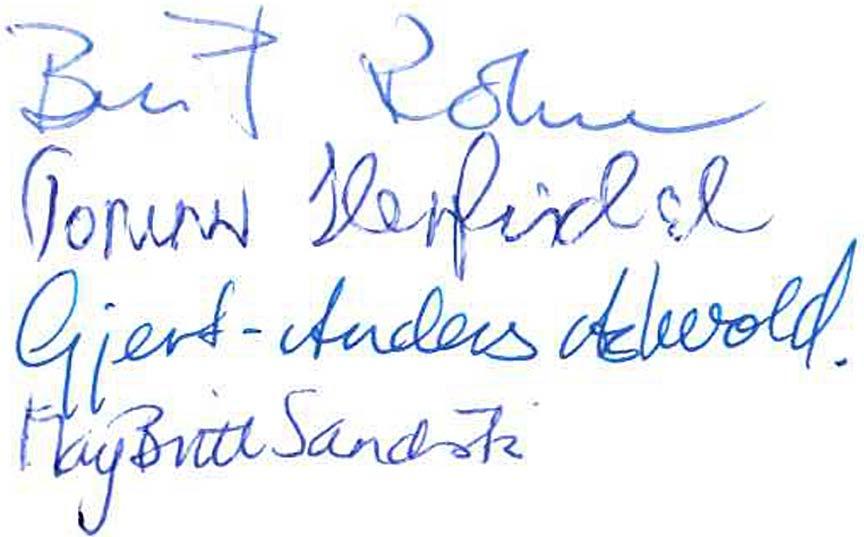 Berit
Tormod Herfindal
Gjert-Anders Askevold.
May Britt Sandstå